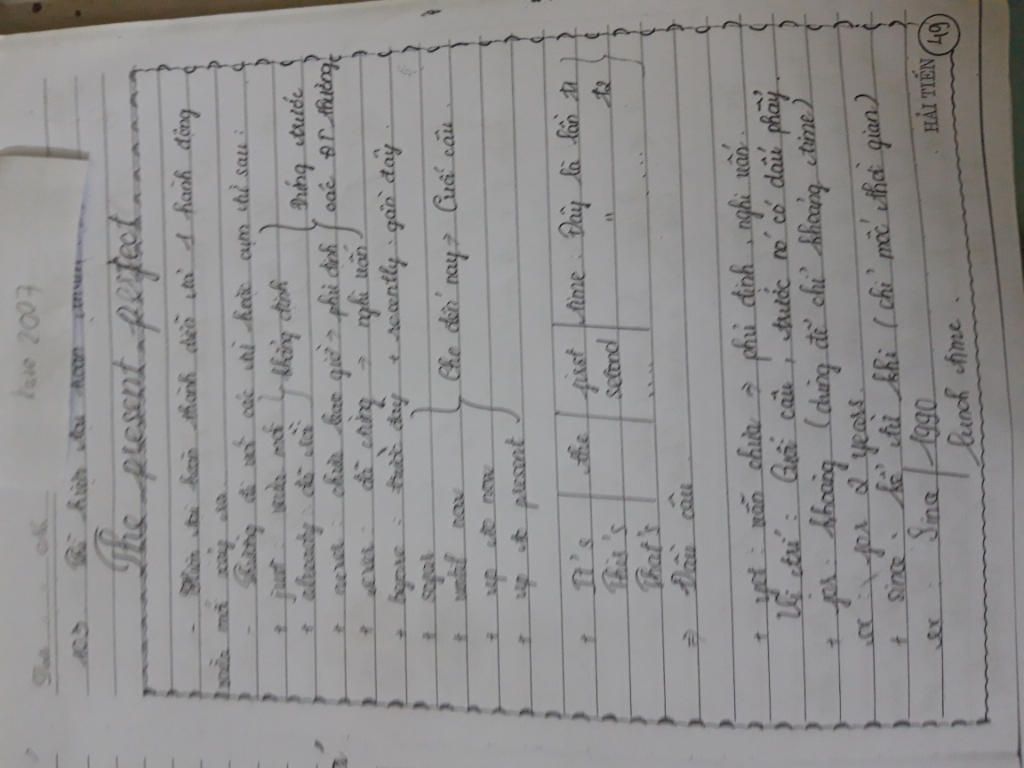 The present perfect
- Hiện tại hoàn thành diễn tả 1 hành động
vừa mới xảy ra
- Thường đi với các từ hoặc cụm từ sau:
+ just: vừa mới } khẳng định } Đứng trước
+ already: đã rồi
+ never: chưa bao giờ → phủ định } các ĐT thường
+ ever: đã từng → nghi vấn
+ before: trước đây + recently: gần đây
+ sofar } Cho đến nay → Cuối câu
+ until now
+ up to now
+ up to present
+ It's | the | first | time: Đây là lần t1
This's second " t2
That's .... ....
⇒ Đầu câu
+ yet: vẫn chưa ⇒ phủ định, nghi vấn
Vị trí: Cuối câu, trước nó có dấu phẩy
+ for: khoảng (dùng để chỉ khoảng time)
ex: for 2 years
+ since: kể từ khi (chỉ mốc thời gian)
ex: Sina | 1990
lunch time.
HẢI TIẾN
49